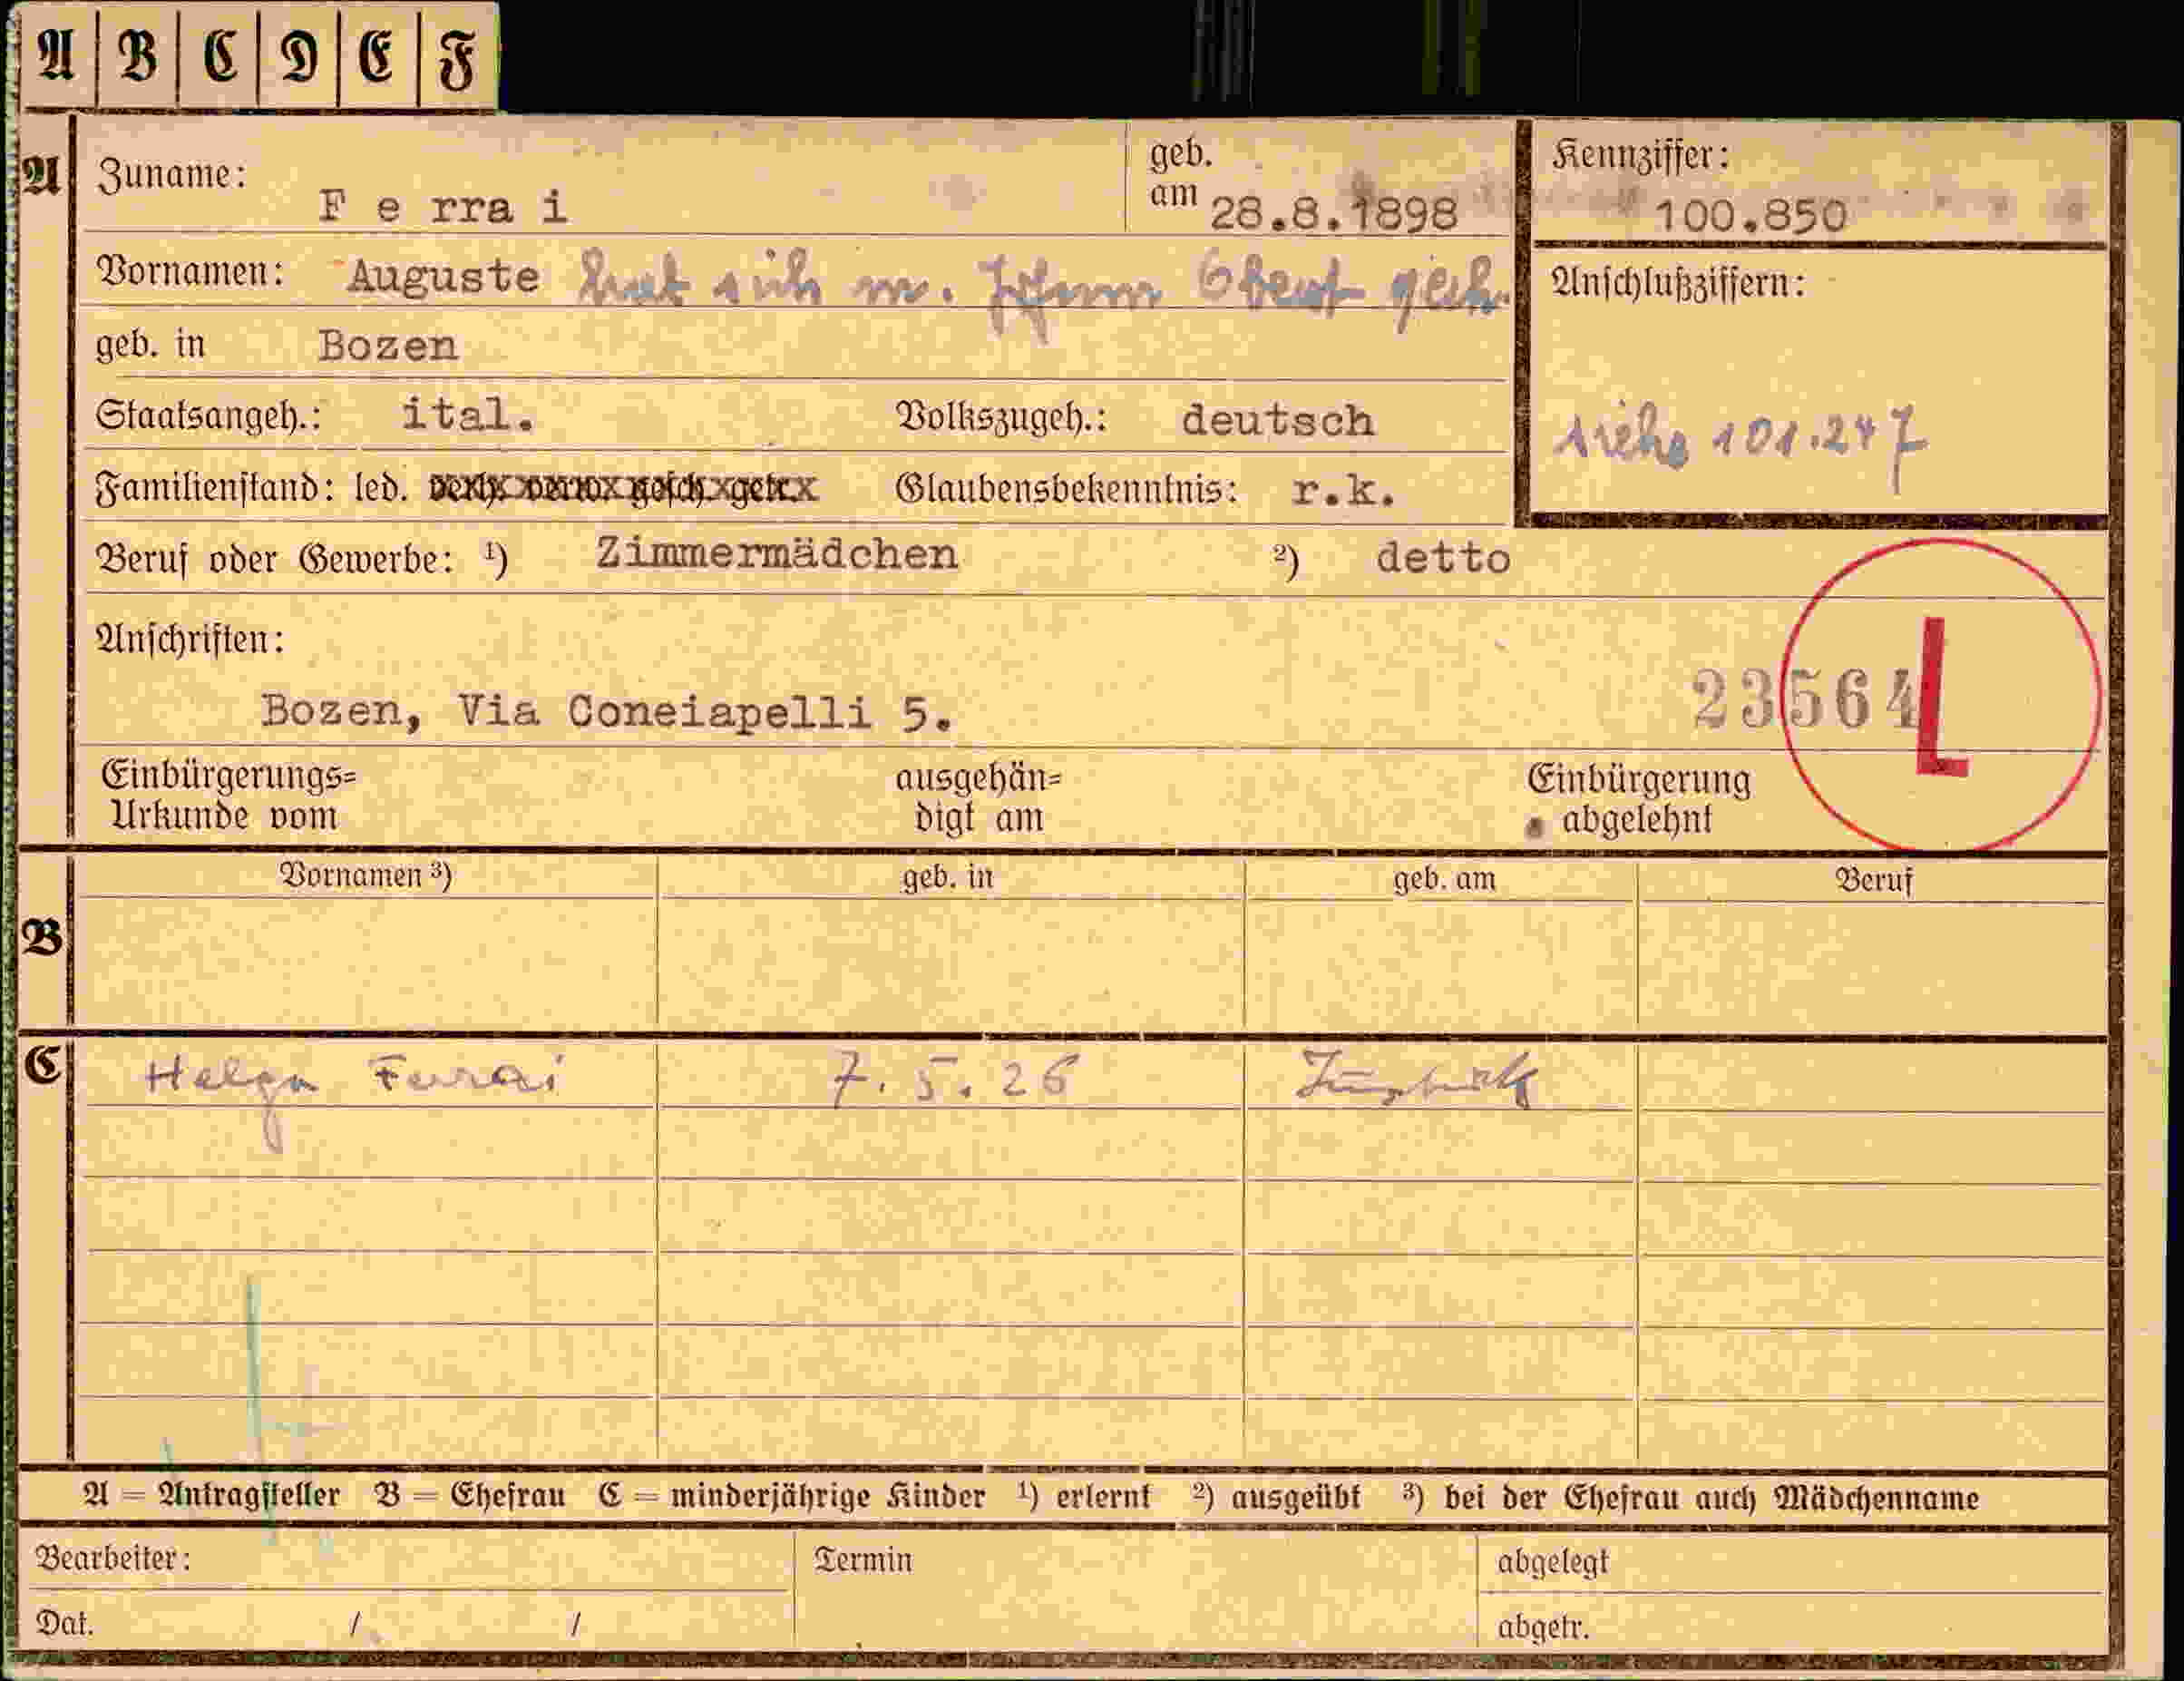 A B C D E F
A Zuname: Ferrai geb. am 28.8.1898 Kennziffer: 100.850
Vornamen: Auguste hat sich m. Johann geh. Anschlußziffern:
geb. in Bozen
Staatsangeh.: ital. Volkszugeh.: deutsch siehe 101.247
Familienstand: led. verh. verw. gesch. getr. Glaubensbekenntnis: r.k.
Beruf oder Gewerbe: ¹) Zimmermädchen ²) detto
Anschriften:
Bozen, Via Coneiapelli 5. 23564 L
Einbürgerungs= ausgehän= Einbürgerung
Urkunde vom digt am abgelehnt
Vornamen ³) geb. in geb. am Beruf
B
C Helga Ferrai 7.5.26
A = Antragsteller B = Ehefrau C = minderjährige Kinder ¹) erlernt ²) ausgeübt ³) bei der Ehefrau auch Mädchenname
Bearbeiter: Termin abgelegt
Dat. / / abgetr.